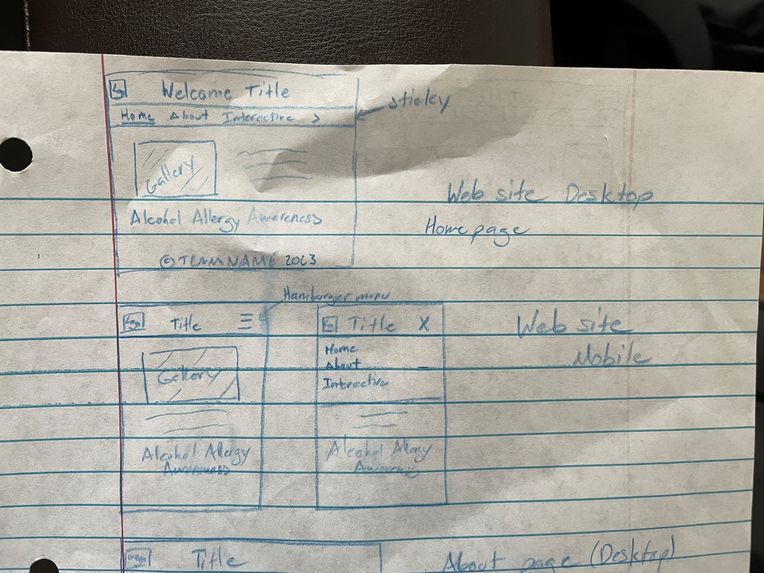 Welcome Title
Home About Interactive >
sticky
Gallery
Alcohol Allergy Awareness
© TEAM NAME 2023
Web site Desktop
Homepage
Hamburger menu
Logo Title
Gallery
Alcohol Allergy
Awareness
Title X
Home
About
Interactive
Alcohol Allergy
Awareness
Web site
Mobile
Title
About page (Desktop)